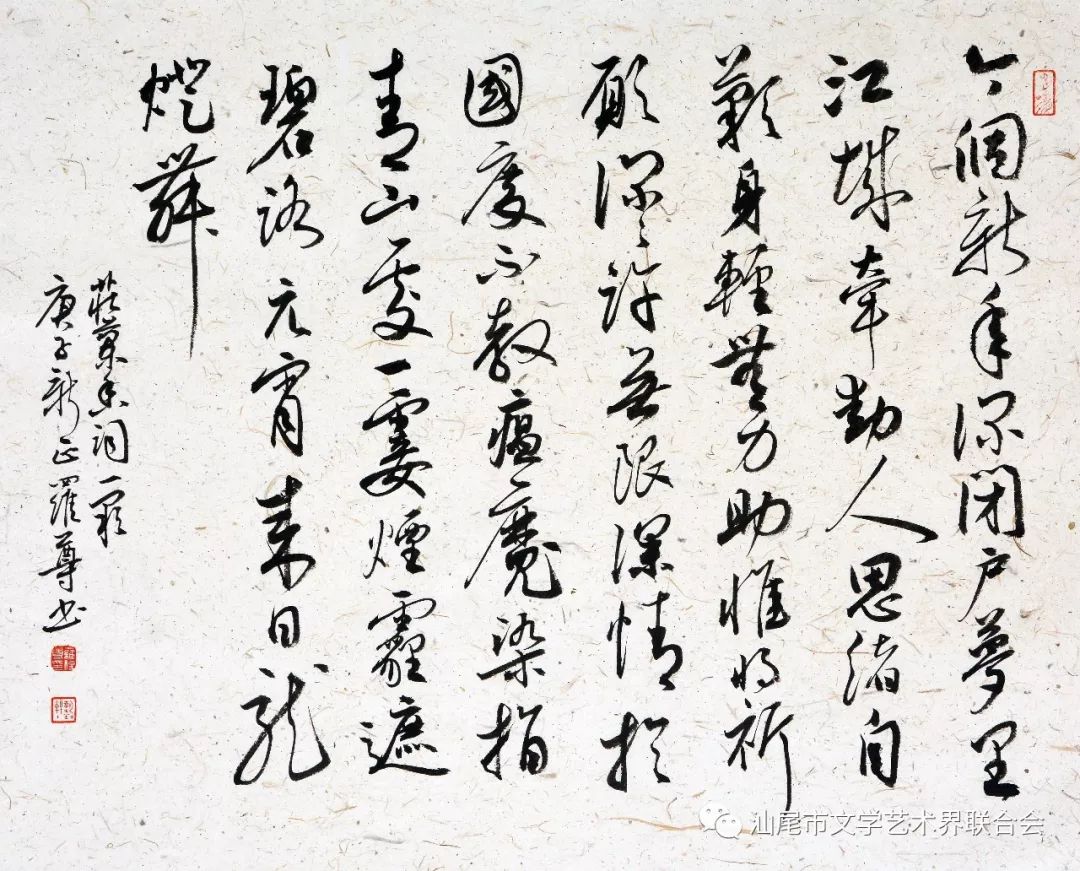 今個新年深閉戶夢里
江城牽動人思緒自
歎身輕無力助惟將祈
願深々許無限深情於
國度不教瘟魔染指
青山處一霎煙霾遮
碧路元宵來日龍
燈舞
莊詞一闋
庚子新正羅尊書
汕尾市文学艺术界联合会